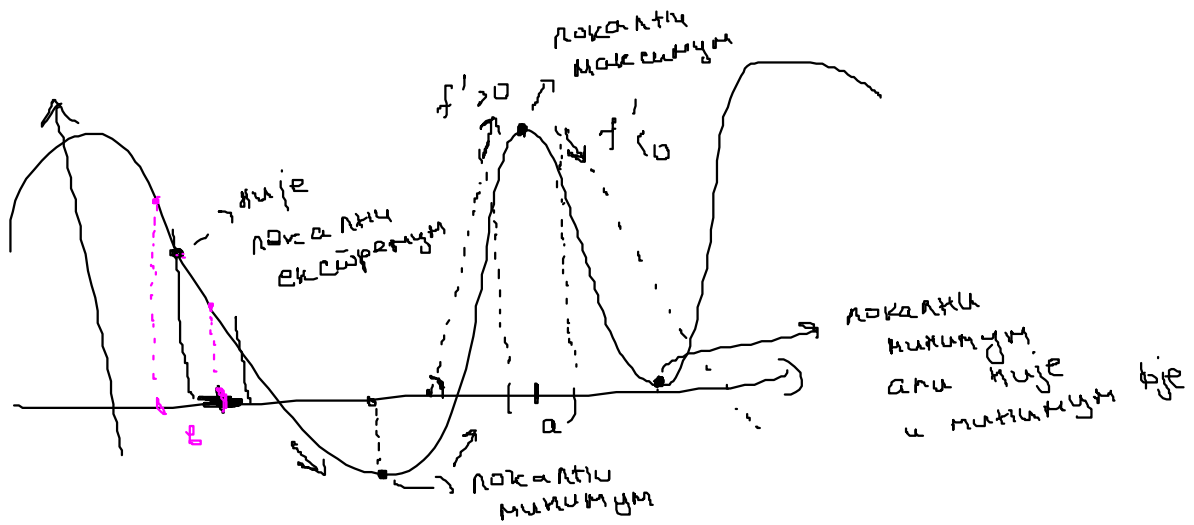 локални
максимум
f' > 0
f' < 0
није
локални
екстремум
локални
минимум
али није
и минимум фје
a
b
локални
минимум